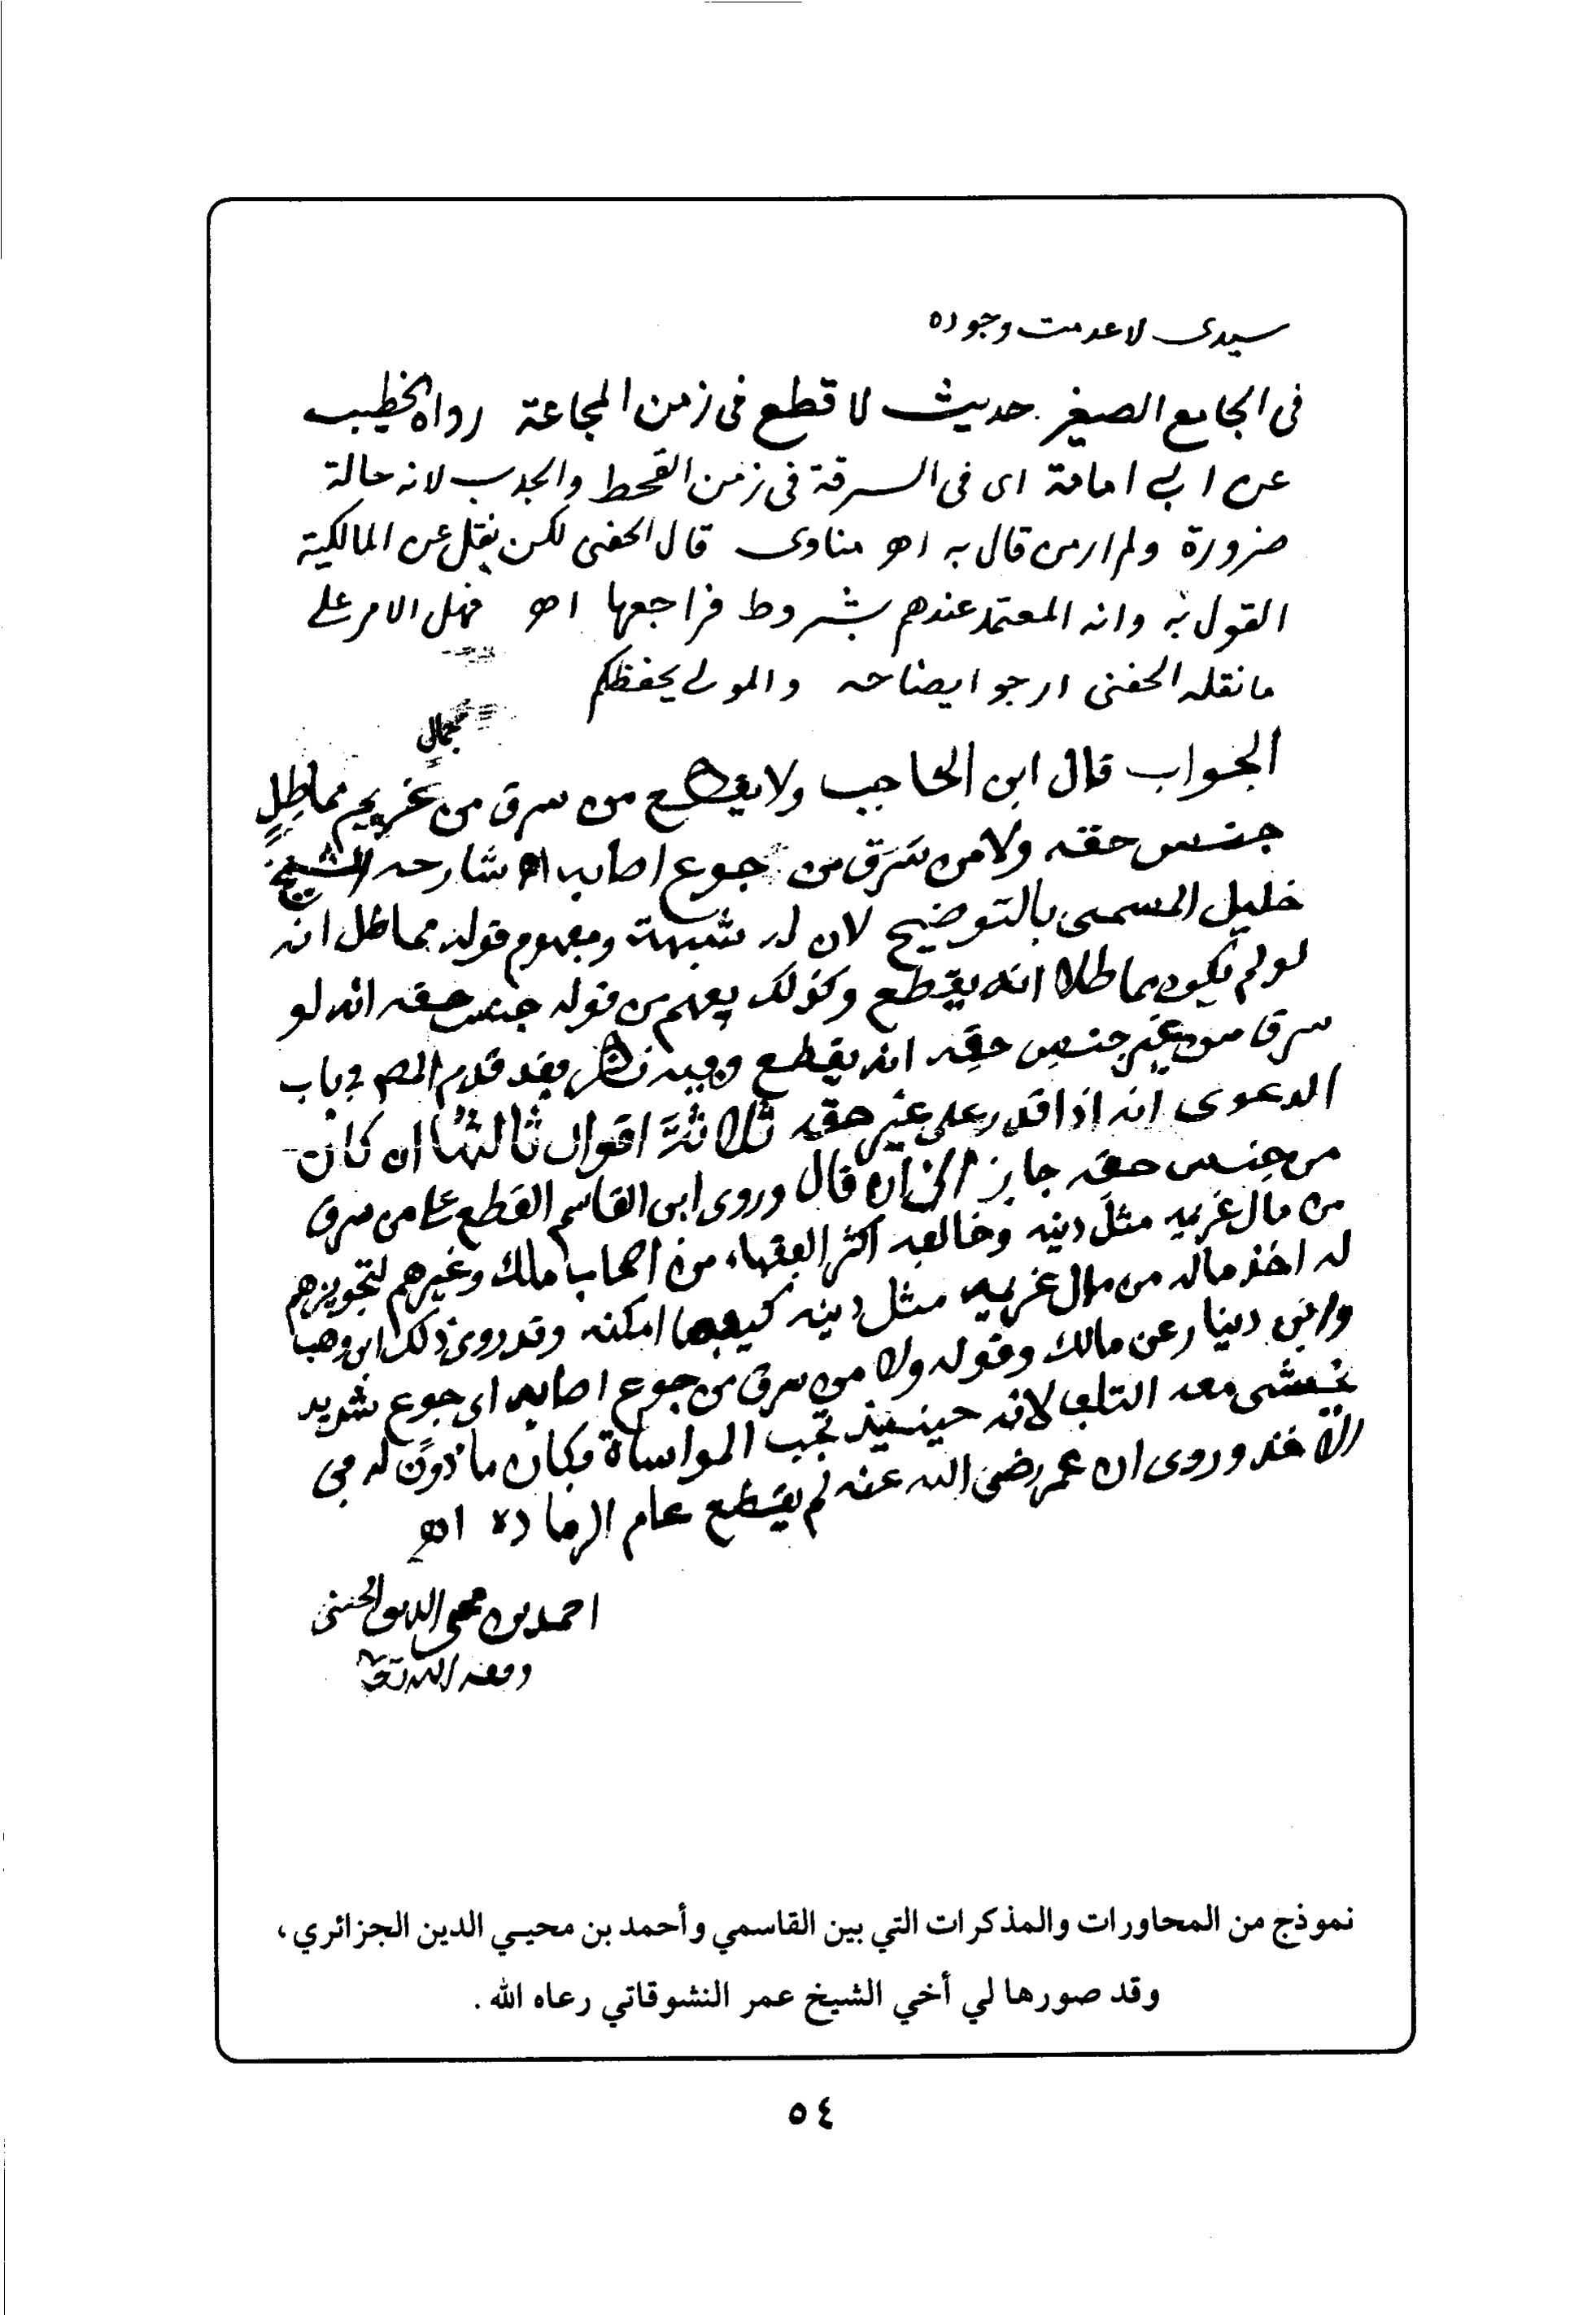 سيدى لا عدمت وجوده
فى الجامع الصغير حديث لا قطع فى زمن المجاعة رواه الخطيب
عن ابي امامة اى فى السرقة فى زمن القحط والجدب لانه حالة
ضرورة ولم ار من قال به اھ مناوى قال الحفنى لكن نقل عن المالكية
القول به وانه المعتمد عندهم بشروط فراجعها اھ فهل الامر على
ما نقله الحفنى ارجو ايضاحه والمولى يحفظكم
جمال
الجواب قال ابن الحاجب ولا يقطع من سرق من غريم مماطل
جنس حقه ولا من سرق من جوع اصابه اھ شارحه الشيخ
خليل المسمى بالتوضيح لان له شبهة ومفهوم قوله مماطل انه
لو لم يكن مماطلا انه يقطع وكذلك يفهم من قوله جنس حقه انه لو
سرق من غير جنس حقه انه يقطع وفيه نظر فقد قدم المص فى باب
الدعوى انه اذا قدر على غير حقه ثلاثة اقوال ثالثها ان كان
من جنس حقه جاز قال وروى ابن القاسم القطع على من سرق
من مال غريمه مثل دينه وخالفه اكثر الفقهاء من اصحاب ملك وغيرهم لتجويزهم
له اخذ ماله من مال غريمه مثل دينه كيفما امكنه وقد روى ذلك ابن وهب
وابن دينار عن مالك وقوله ولا من سرق من جوع اصابه اى جوع شديد
يخشى معه التلف لانه حينئذ تجب المواساة فكان ماذون له فى
الاخذ وروى ان عمر رضى الله عنه لم يقطع عام الرمادة اھ
احمد بن محى الدين الحسنى
وفقه الله تعالى
نموذج من المحاورات والمذكرات التي بين القاسمي وأحمد بن محيي الدين الجزائري،
وقد صورها لي أخي الشيخ عمر النشوقاتي رعاه الله.
٥٤